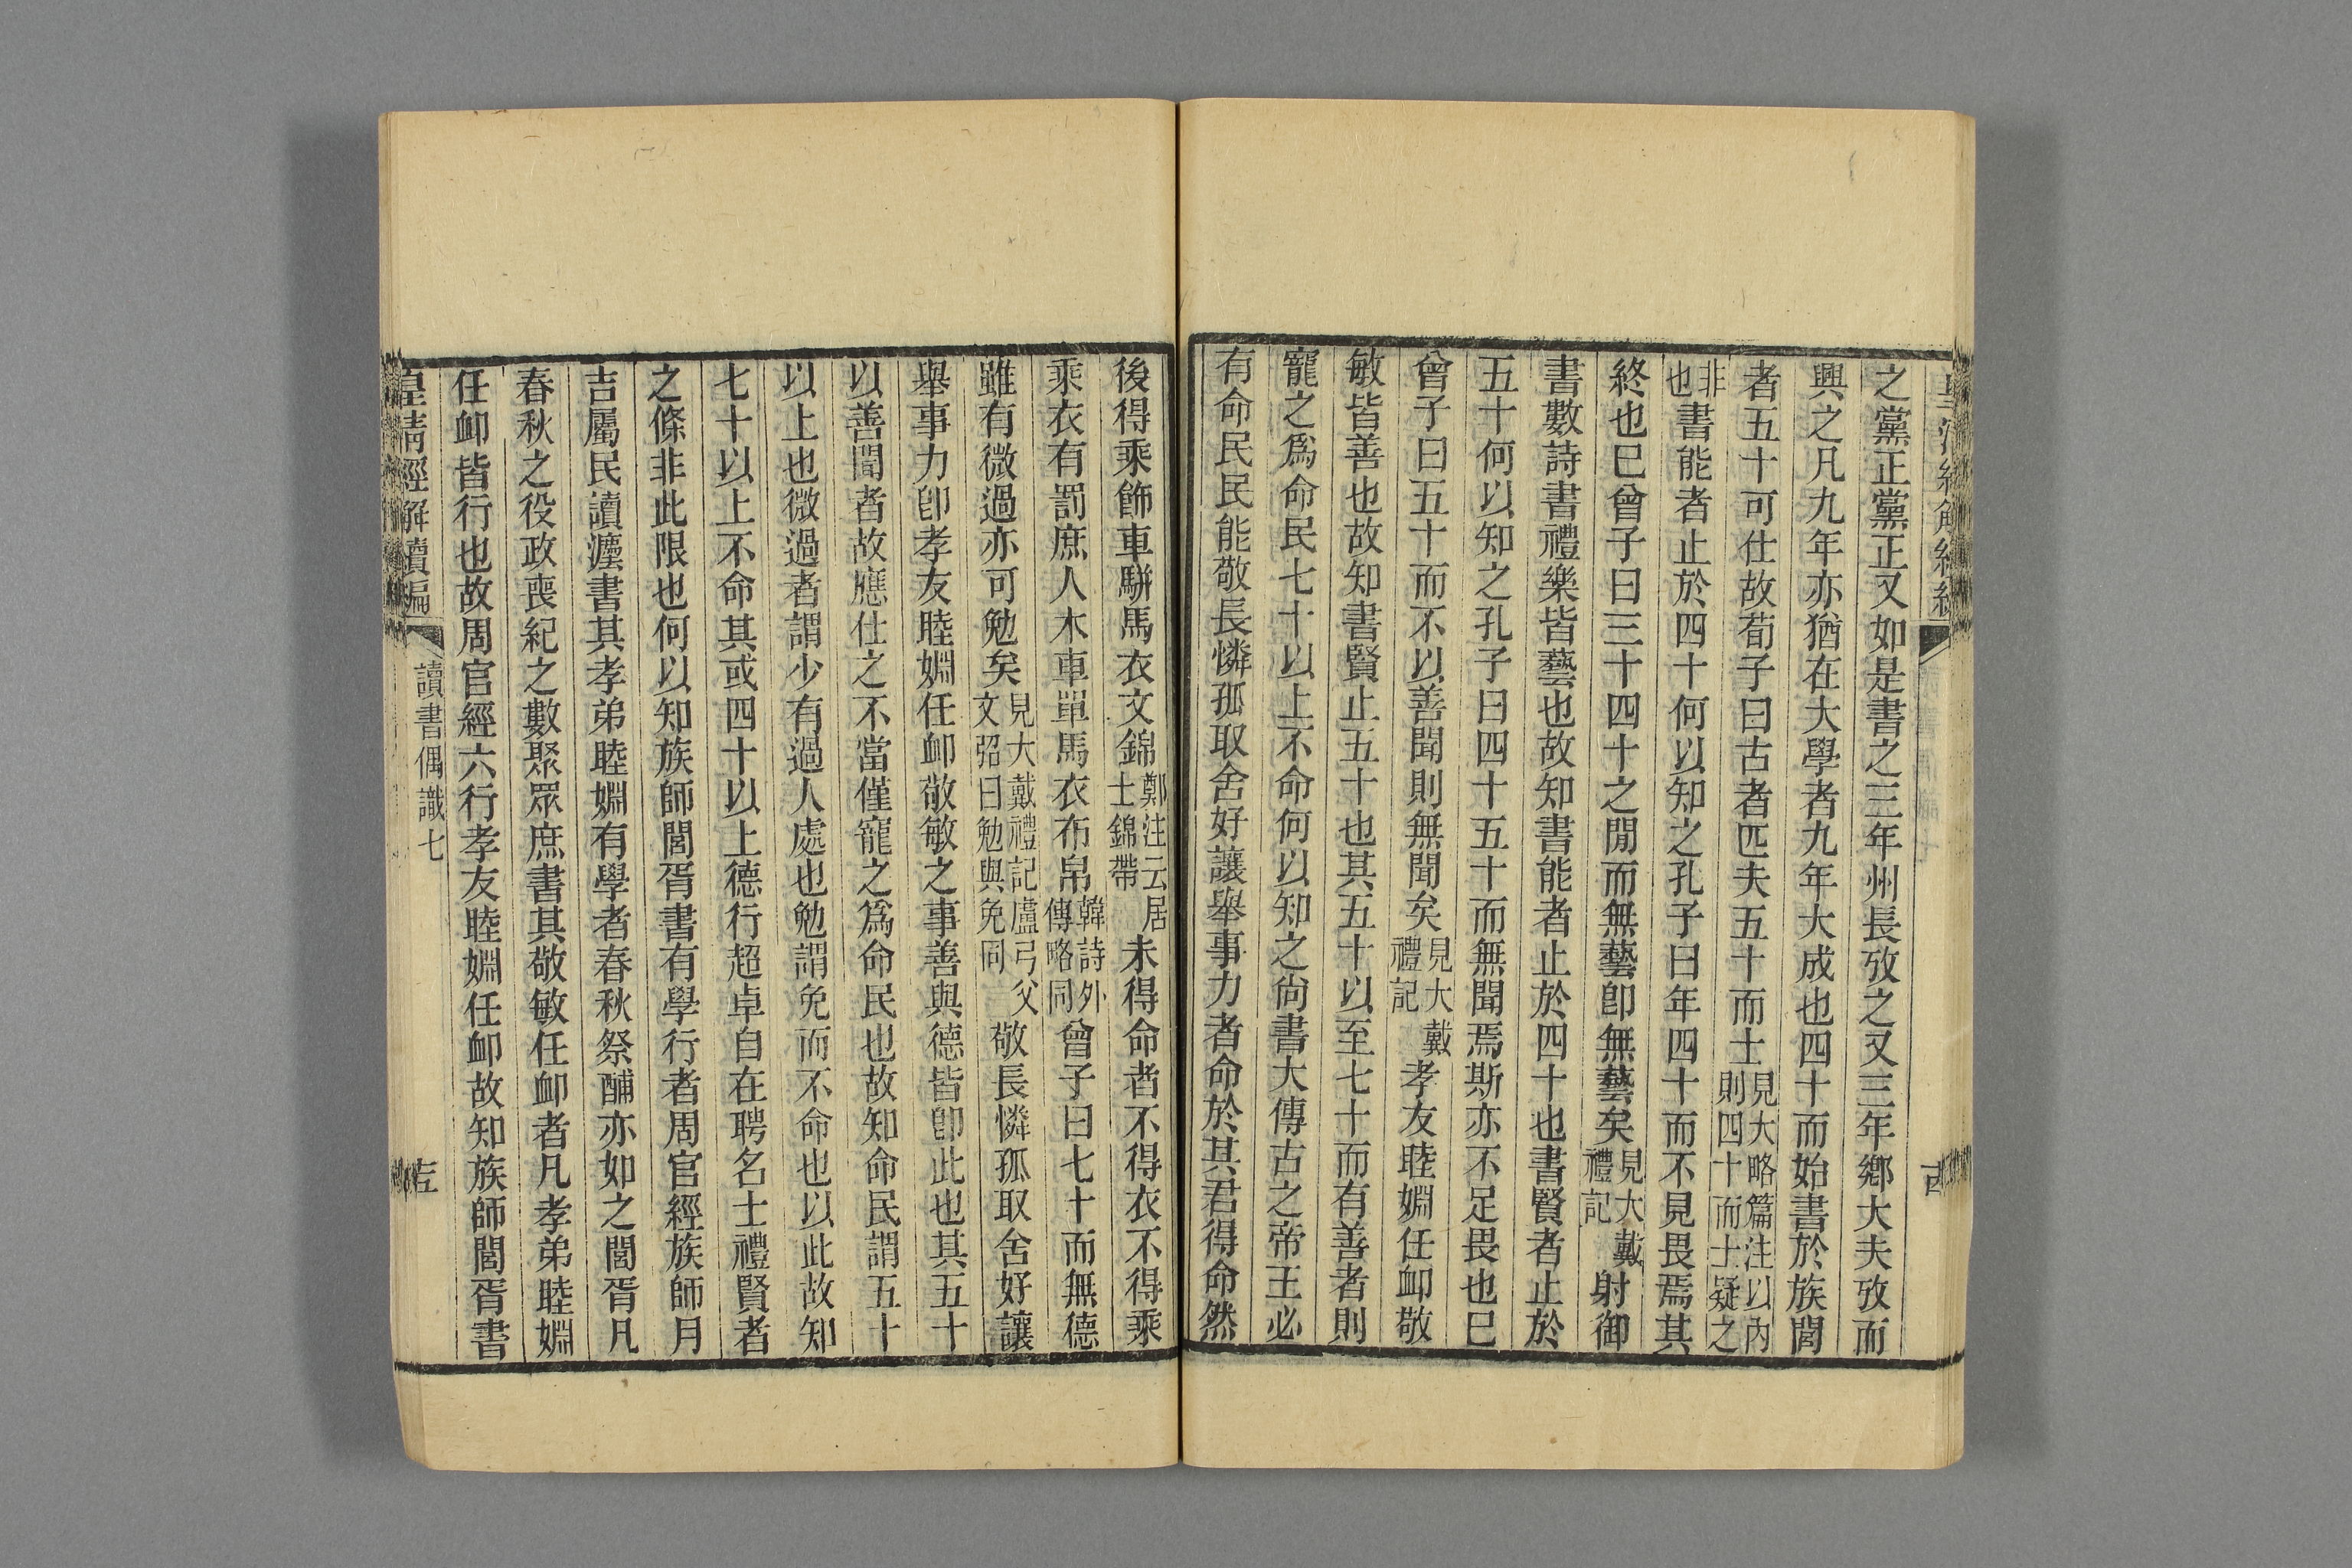 之黨正黨正又如是書之三年州長攷之又三年鄉大夫攷而
興之凡九年亦猶在大學者九年大成也四十而始書於族閭
者五十可仕故荀子曰古者匹夫五十而士見大略篇注以內則四十而士疑之
非也書能者止於四十何以知之孔子曰年四十而不見畏焉其
終也已曾子曰三十四十之閒而無藝卽無藝矣見大戴禮記射御
書數詩書禮樂皆藝也故知書能者止於四十也書賢者止於
五十何以知之孔子曰四十五十而無聞焉斯亦不足畏也已
曾子曰五十而不以善聞則無聞矣見大戴禮記孝友睦婣任卹敬
敏皆善也故知書賢止五十也其五十以至七十而有善者則
寵之爲命民七十以上不命何以知之尙書大傳古之帝王必
有命民民能敬長憐孤取舍好讓舉事力者命於其君得命然
後得乘飾車駢馬衣文錦鄭注云居士錦帶未得命者不得衣不得乘
乘衣有罰庶人木車單馬衣布帛韓詩外傳略同曾子曰七十而無德
雖有微過亦可勉矣見大戴禮記盧弓父文弨曰勉與免同敬長憐孤取舍好讓
舉事力卽孝友睦婣任卹敬敏之事善與德皆卽此也其五十
以善聞者故應仕之不當僅寵之爲命民也故知命民謂五十
以上也微過者謂少有過人處也勉謂免而不命也以此故知
七十以上不命其或四十以上德行超卓自在聘名士禮賢者
之條非此限也何以知族師閭胥書有學行者周官經族師月
吉屬民讀灋書其孝弟睦婣有學者春秋祭酺亦如之閭胥凡
春秋之役政喪紀之數聚眾庶書其敬敏任卹者凡孝弟睦婣
任卹皆行也故周官經六行孝友睦婣任卹故知族師閭胥書
皇清經解續編
讀書偶識七